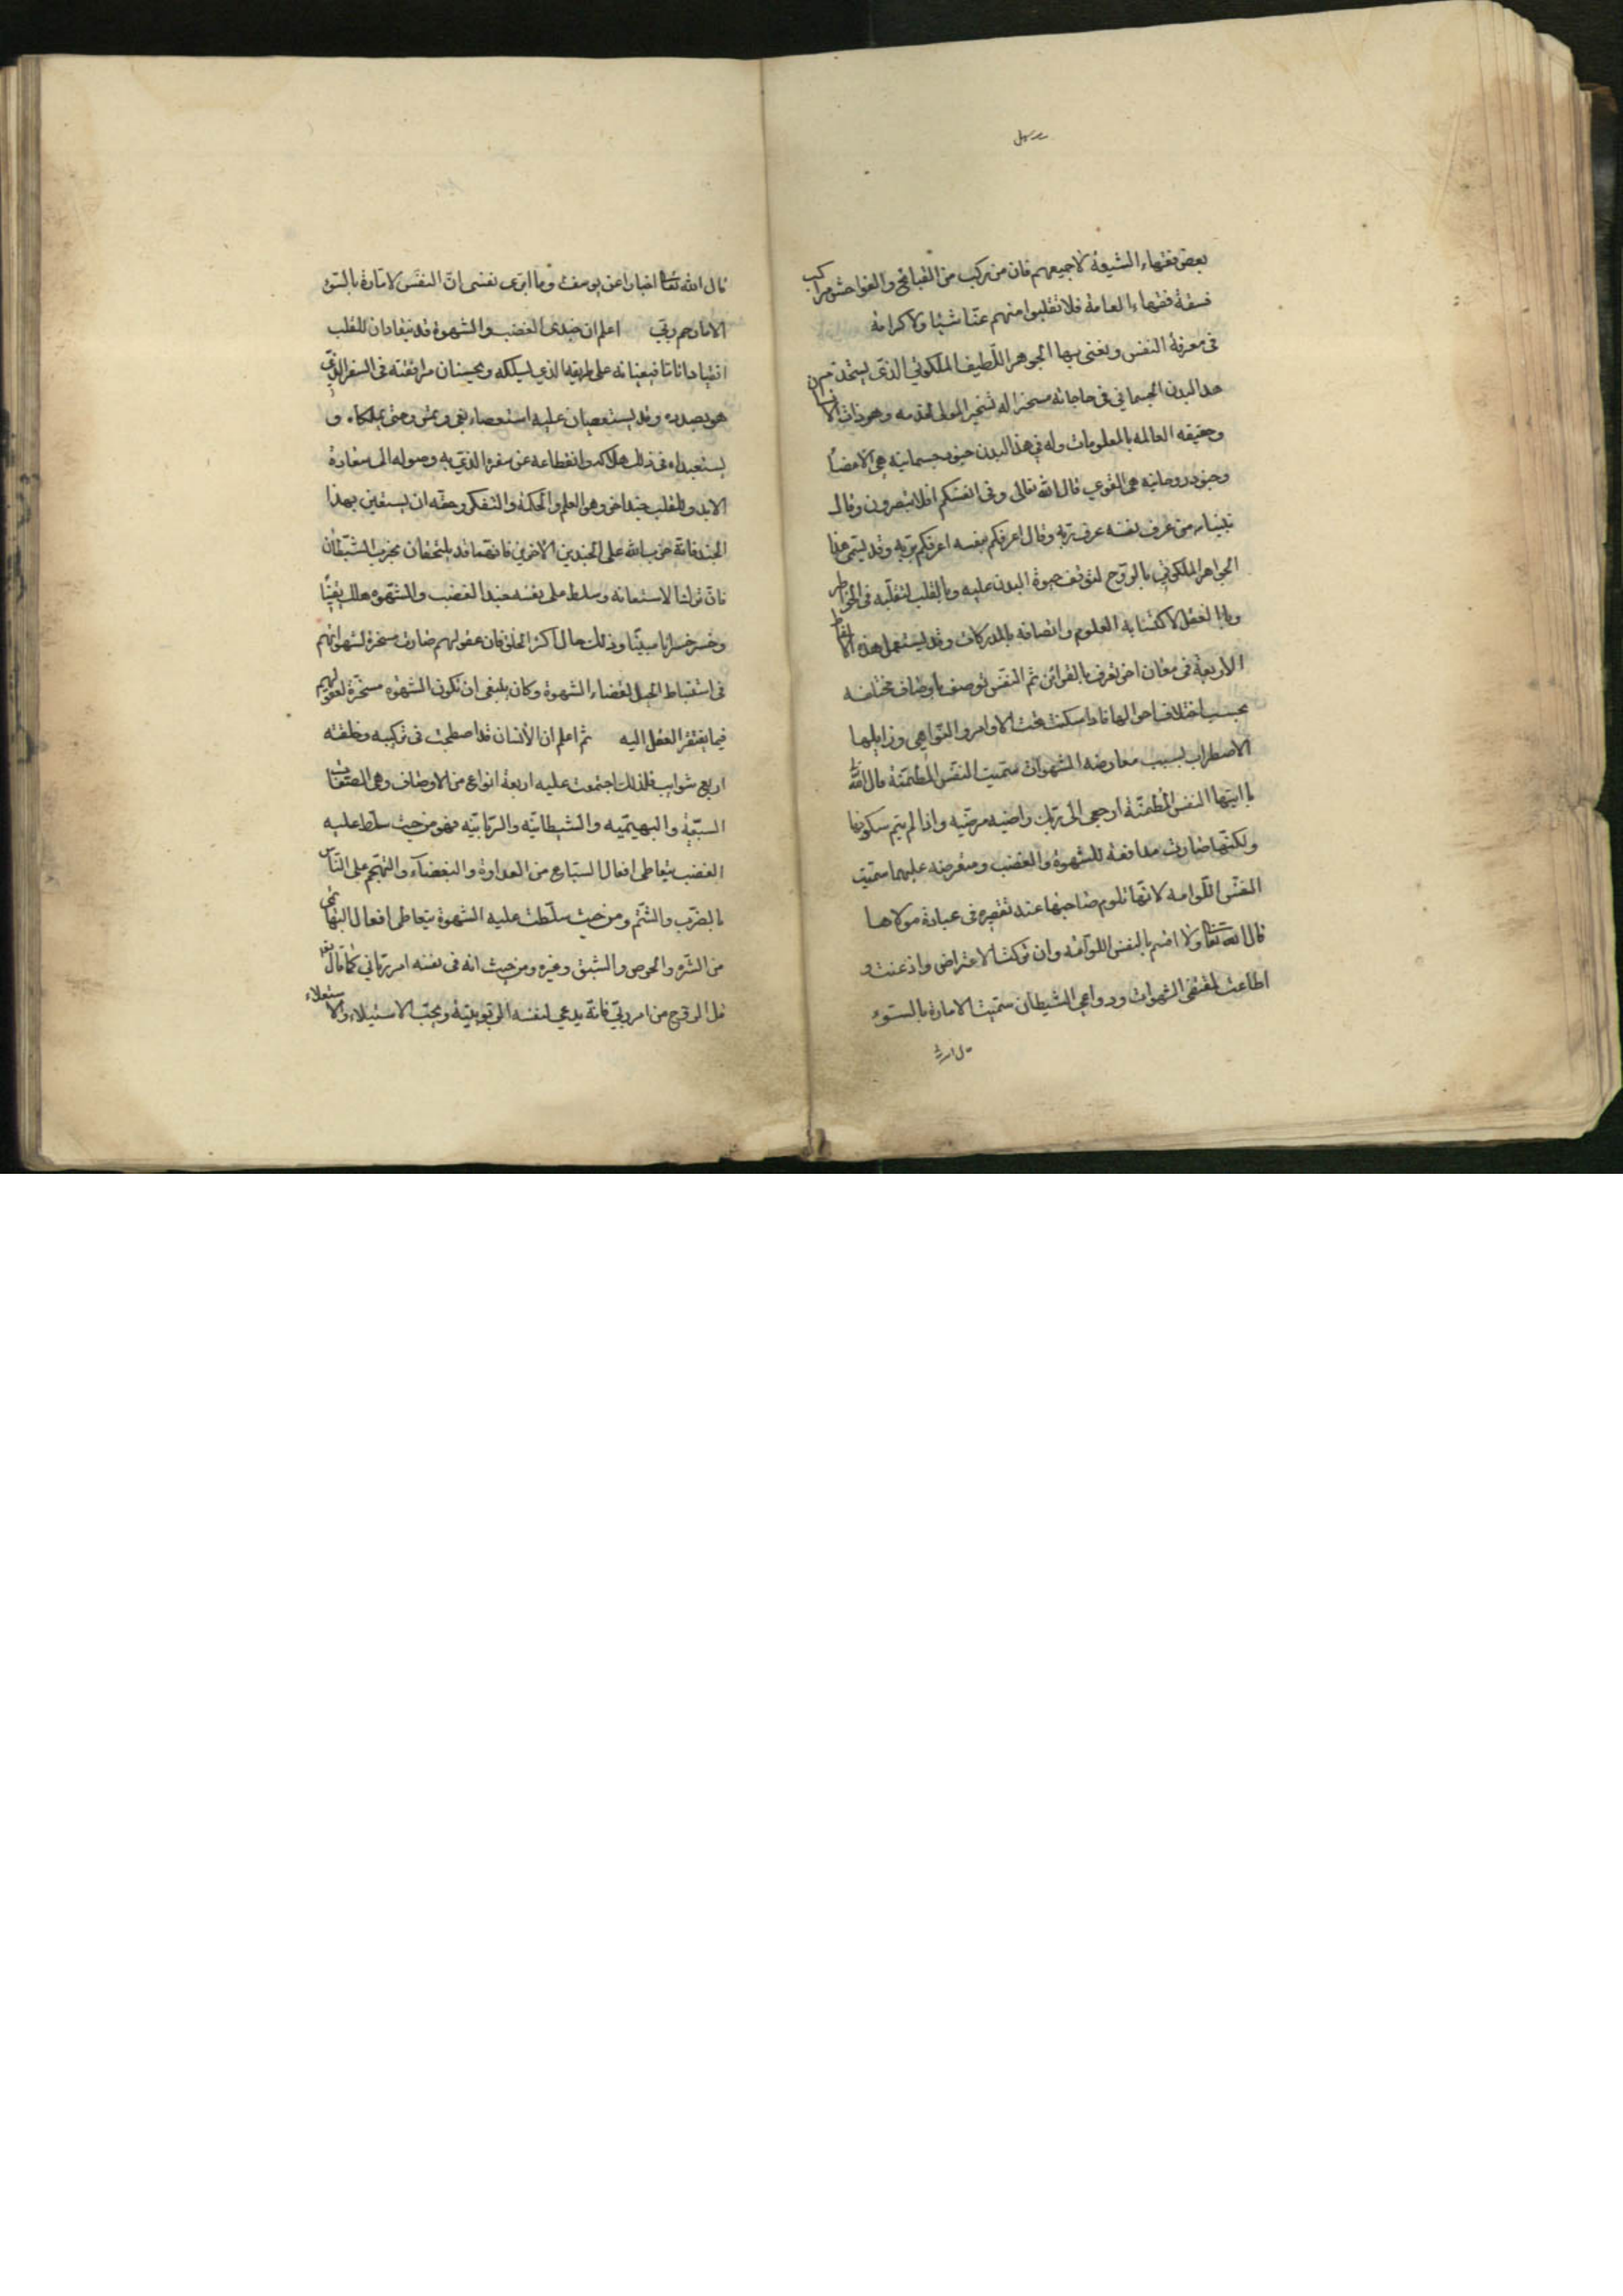 بعض فقهاء الشيعة لا جميعهم فان من يركب من القبائح والفواحش مراكب
فسقة فقهاء العامة فلا تقبلوا منهم عنا شيئا ولا كرامة
فى معرفة النفس ونعنى بها الجوهر اللطيف الملكوتي الذى يستخدم
هذا البدن الجسماني فى حاجاته مسخرا له تسخير المولى لخدمه وهو ذات الانسان
وحقيقه العالمه بالمعلومات وله في هذا البدن جنود جسمانيه هى الاعضاء
وجنود روحانيه هى القوى قال الله تعالى وفى انفسكم افلا تبصرون وقال
نبينا من عرف نفسه عرف ربه وقال اعرفكم بنفسه اعرفكم بربه وقد يسمى هذا
الجواهر الملكوتي بالروح لتوقف حيوة البدن عليه وبالقلب لتقلبه فى الخواطر
وبالعقل لاكتسابه العلوم واتصافه بالمدركات وقد يستعمل هذه الالفاظ
الاربعة فى معان اخر تعرف بالقرائن ثم النفس توصف باوصاف مختلفه
بحسب اختلاف احوالها فاذا سكنت تحت الاوامر والنواهي وزايلها
الاضطراب بسبب معارضه الشهوات سميت النفس المطمئنه قال الله
يا ايتها النفس المطمئنة ارجعى الى ربك راضيه مرضيه واذا لم يتم سكونها
ولكنها صارت مدافعة للشهوة والغضب ومتعرضه عليهما سميت
النفس اللوامه لانها تلوم صاحبها عند تقصيره فى عبادة مولاها
قال الله تعا ولا اقسم بالنفس اللوامه وان تركت الاعتراض واذعنت و
اطاعت لمقتضى الشهوات ودواعي الشيطان سميت الامارة بالسوء
قال الله
قال الله تعا اخبارا عن يوسف وما ابرى نفسى ان النفس لامارة بالسوء
الا ما رحم ربي اعلم ان جندى الغضب والشهوة قد ينقادان للقلب
انقيادا تاما فيعينانه على طريقه الذي يسلكه ويحسنان مرافقته فى السفر الذي
هو بصدده وقد يستعصيان عليه استعصاء بغى وتمرد حتى يملكاه و
يستعبداه وفى ذلك هلاكه وانقطاعه عن سفره الذى به وصوله الى سعادة
الابد وللقلب جند اخر وهو العلم والحكمة والتفكر وحقه ان يستعين بهذا
الجند فانه حزب الله على الجندين الاخرين فانهما قد يلتحقان بحزب الشيطان
فان ترك الاستعانه وسلط على نفسه جند الغضب والشهوه هلك يقينا
وخسر خسرانا مبينا وذلك حال اكثر الخلق فان عقولهم صارت مسخرة لشهواتهم
فى استنباط الحيل لقضاء الشهوة وكان ينبغى ان تكون الشهوه مسخرة لعقولهم
فيما يفتقر العقل اليه ثم اعلم ان الانسان قد اصطحب فى تركيبه وخلقته
اربع شوايب فلذلك اجتمعت عليه اربعة انواع من الاوصاف وهى الصفات
السبعية والبهيميه والشيطانيه والربانيه فهو من حيث سلط عليه
الغضب يتعاطى افعال السباع من العداوة والبغضاء والتهجم على الناس
بالضرب والشتم ومن حيث سلطت عليه الشهوة يتعاطى افعال البهائم
من الشره والحرص والشبق وغيره ومن حيث انه فى نفسه امر رباني كما قال تعا
قل الروح من امر ربي فانه يدعي لنفسه الربوبية ويحب الاستيلاء والاستعلاء